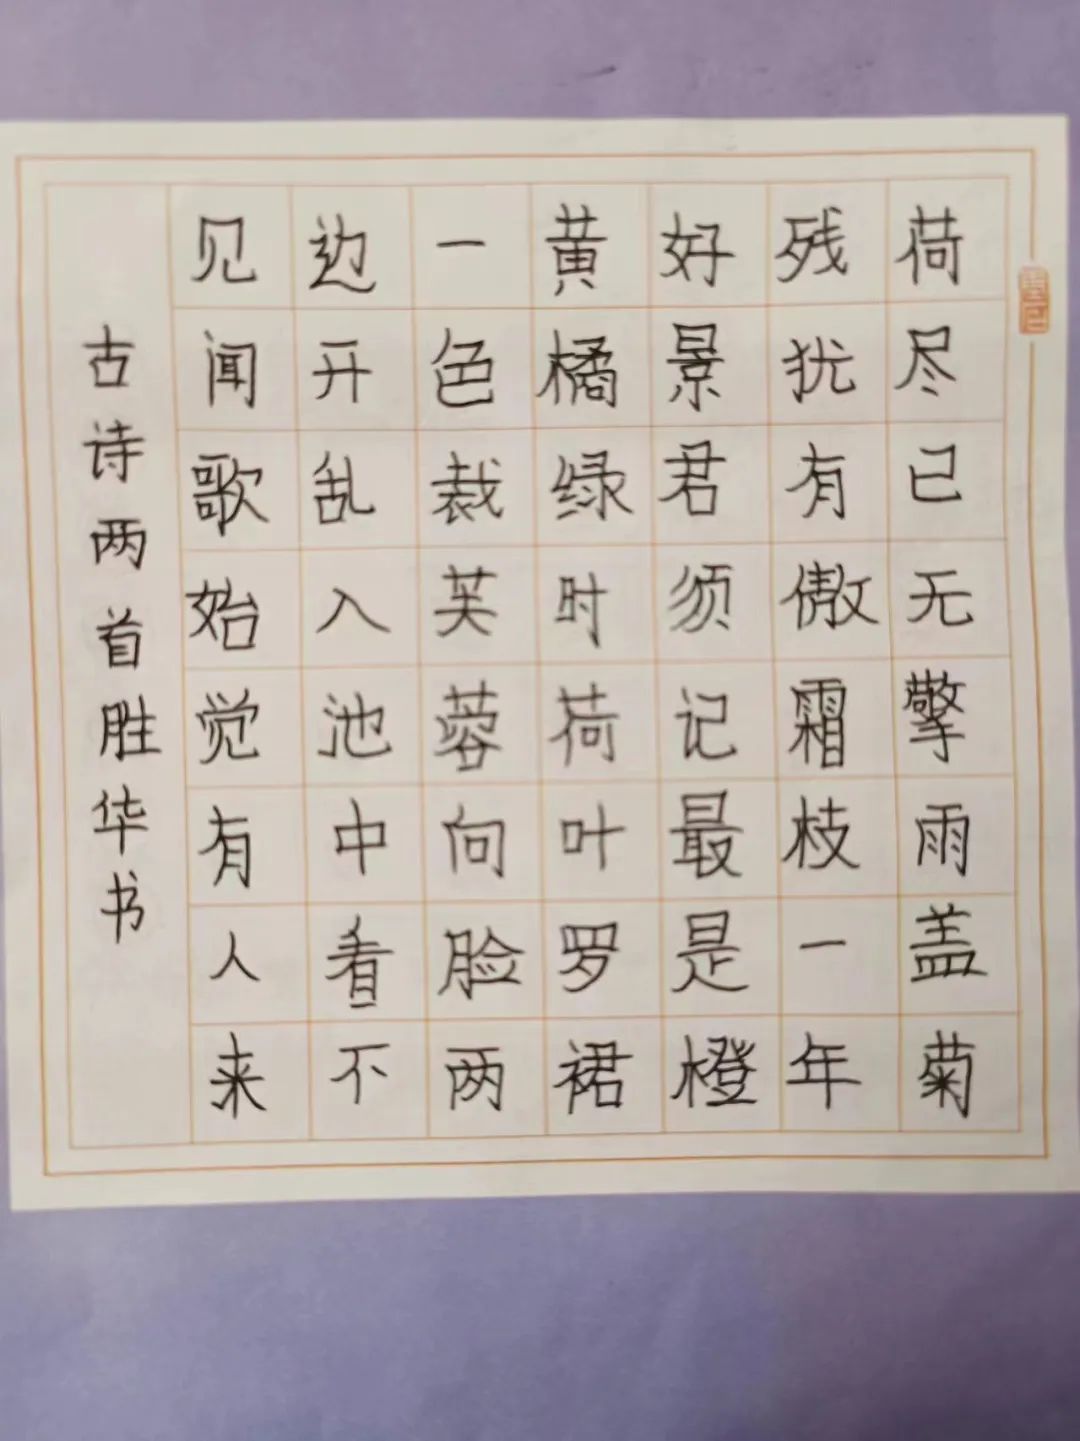 荷尽已无擎雨盖菊
残犹有傲霜枝一年
好景君须记最是橙
黄橘绿时荷叶罗裙
一色裁芙蓉向脸两
边开乱入池中看不
见闻歌始觉有人来
古诗两首胜华书